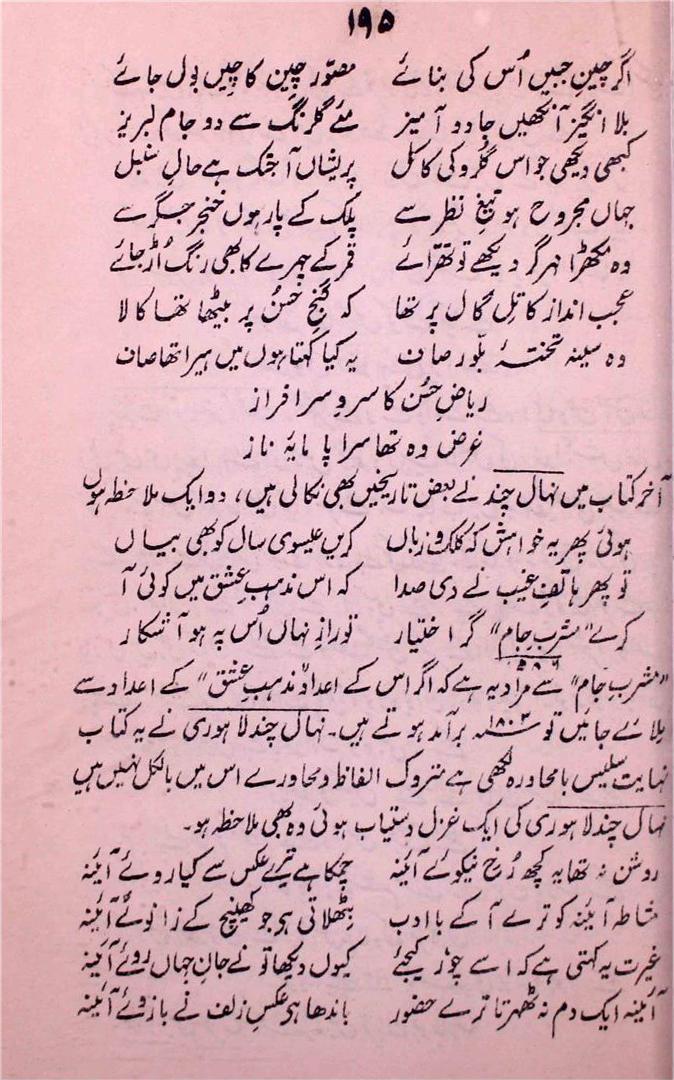 ۱۹۵
اگر چینِ جبیں اُس کی بنائے مصوّر چین کا چیں بول جائے
بلا انگیز آنکھیں جادو آمیز مئے گلرنگ سے دو جام لبریز
کبھی دیکھی جو اس گلرو کی کاکل پریشاں آجتک ہے حالِ سنبل
جہاں مجروح ہو تیغِ نظر سے پلک کے پار ہوں خنجر جگر سے
وہ مکھڑا مہر گر دیکھے تو تھرائے قمر کے چہرے کا بھی رنگ اُڑ جائے
عجب انداز کا تِل گال پر تھا کہ گنجِ حُسن پر بیٹھا تھا کالا
وہ سینہ تختۂ بلّور صاف یہ کیا کہتا ہوں میں ہیرا تھا صاف
ریاضِ حُسن کا سروِ سرافراز
غرض وہ تھا سراپا مایۂ ناز
آخر کتاب میں نہال چند نے بعض تاریخیں بھی نکالی ہیں، دو ایک ملاحظہ ہوں
ہوئی پھر یہ خواہش کہ کلک و زباں کریں عیسوی سال کو بھی بیاں
تو پھر ہاتفِ غیب نے دی صدا کہ اس مذہبِ عشق میں کوئی آ
کرے "مشربِ جام" گر اختیار تو رازِ نہاں اُس پہ ہو آشکار
"مشربِ جام" سے مراد یہ ہے کہ اگر اس کے اعداد "مذہبِ عشق" کے اعداد سے
ملائے جائیں تو ۱۸۰۳ء برآمد ہوتے ہیں۔ نہال چند لاہوری نے یہ کتاب
نہایت سلیس بامحاورہ لکھی ہے متروک الفاظ و محاورے اس میں بالکل نہیں ہیں
نہال چند لاہوری کی ایک غزل دستیاب ہوئی وہ بھی ملاحظہ ہو۔
روشن نہ تھا یہ کچھ رُخِ نیکوئے آئینہ چمکا ہے تیرے عکس سے کیا روئے آئینہ
مشاطہ آئینہ کو ترے آگے با ادب بٹھلاتی ہی جو کھینچ کے زانوئے آئینہ
غیرت یہ کہتی ہے کہ اسے چور کیجئے کیوں دیکھا تونے جانِ جہاں روئے آئینہ
آئینہ ایک دم نہ ٹھہرتا ترے حضور باندھا ہی عکسِ زلف نے بازوئے آئینہ